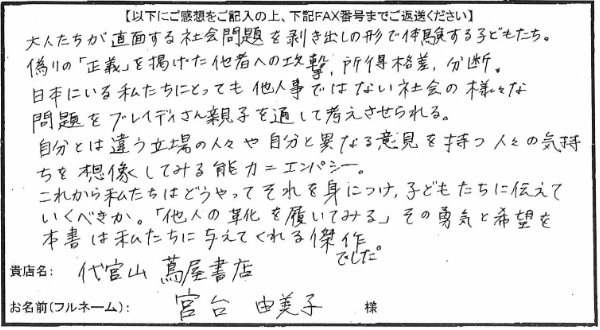 【以下にご感想をご記入の上、下記FAX番号までご返送ください】
大人たちが直面する社会問題を剥き出しの形で体験する子どもたち。
偽りの「正義」を掲げた他者への攻撃、所得格差、分断。
日本にいる私たちにとっても他人事ではない社会の様々な
問題をブレイディさん親子を通して考えさせられる。
自分とは違う立場の人々や自分と異なる意見を持つ人々の気持
ちを想像してみる能力=エンパシー。
これから私たちはどうやってそれを身につけ、子どもたちに伝えて
いくべきか。「他人の靴を履いてみる」その勇気と希望を
本書は私たちに与えてくれる傑作
でした。
貴店名: 代官山 蔦屋書店
お名前(フルネーム): 宮台 由美子 様